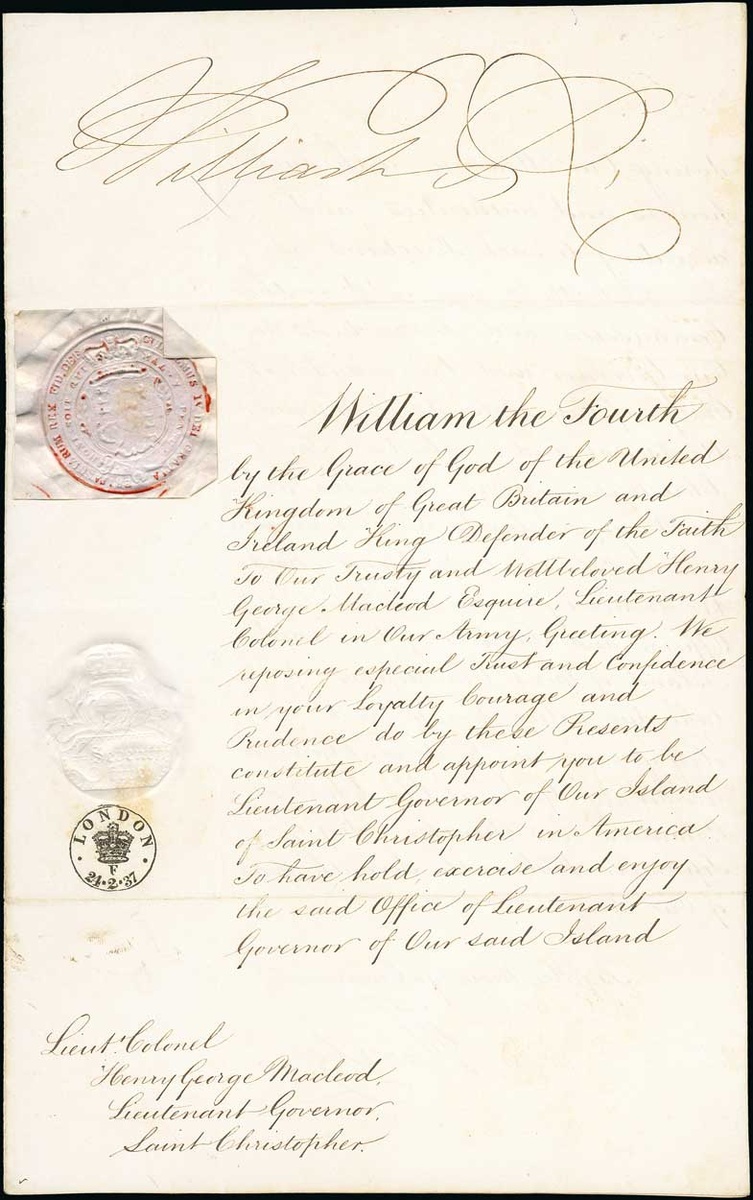 William R
William the Fourth
by the Grace of God of the United
Kingdom of Great Britain and
Ireland King Defender of the Faith
To Our Trusty and Wellbeloved Henry
George Macleod Esquire, Lieutenant
Colonel in Our Army, Greeting. We
reposing especial Trust and Confidence
in your Loyalty Courage and
Prudence do by these Presents
constitute and appoint you to be
Lieutenant Governor of Our Island
of Saint Christopher in America
To have hold, exercise and enjoy
the said Office of Lieutenant
Governor of Our said Island
LONDON
F
24·2·37
Lieut. Colonel
Henry George Macleod,
Lieutenant Governor,
Saint Christopher.